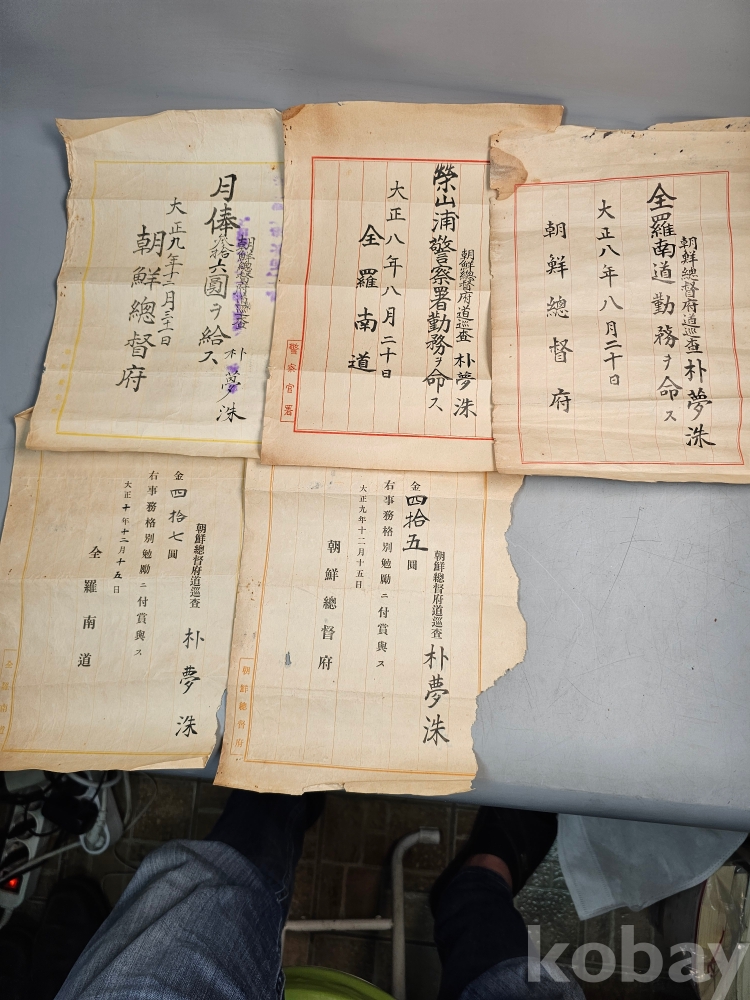 朝鮮總督府道巡査 朴夢洙
全羅南道勤務ヲ命ス
大正八年八月二十日
朝鮮總督府
朝鮮總督府道巡査 朴夢洙
榮山浦警察署勤務ヲ命ス
大正八年八月二十日
全羅南道
警察官署
朝鮮總督府道巡査 朴夢洙
月俸拾六圓ヲ給ス
大正九年十二月三十一日
朝鮮總督府
朝鮮總督府道巡査 朴夢洙
金四拾五圓
右事務格別勉勵ニ付賞與ス
大正九年十二月十五日
朝鮮總督府
朝鮮總督府
朝鮮總督府道巡査 朴夢洙
金四拾七圓
右事務格別勉勵ニ付賞與ス
大正十年十二月十五日
全羅南道
kobay